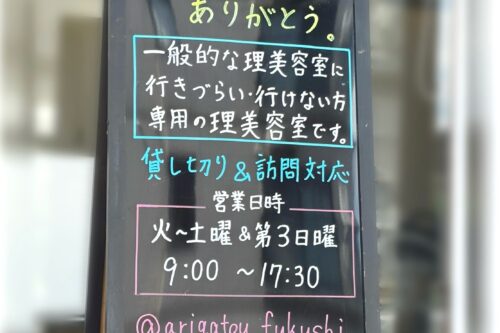 ありがとう。
一般的な理美容室に
行きづらい・行けない方
専用の理美容室です。
貸し切り&訪問対応
営業日時
火~土曜&第3日曜
9:00 ~17:30
@arigatou_fukushi